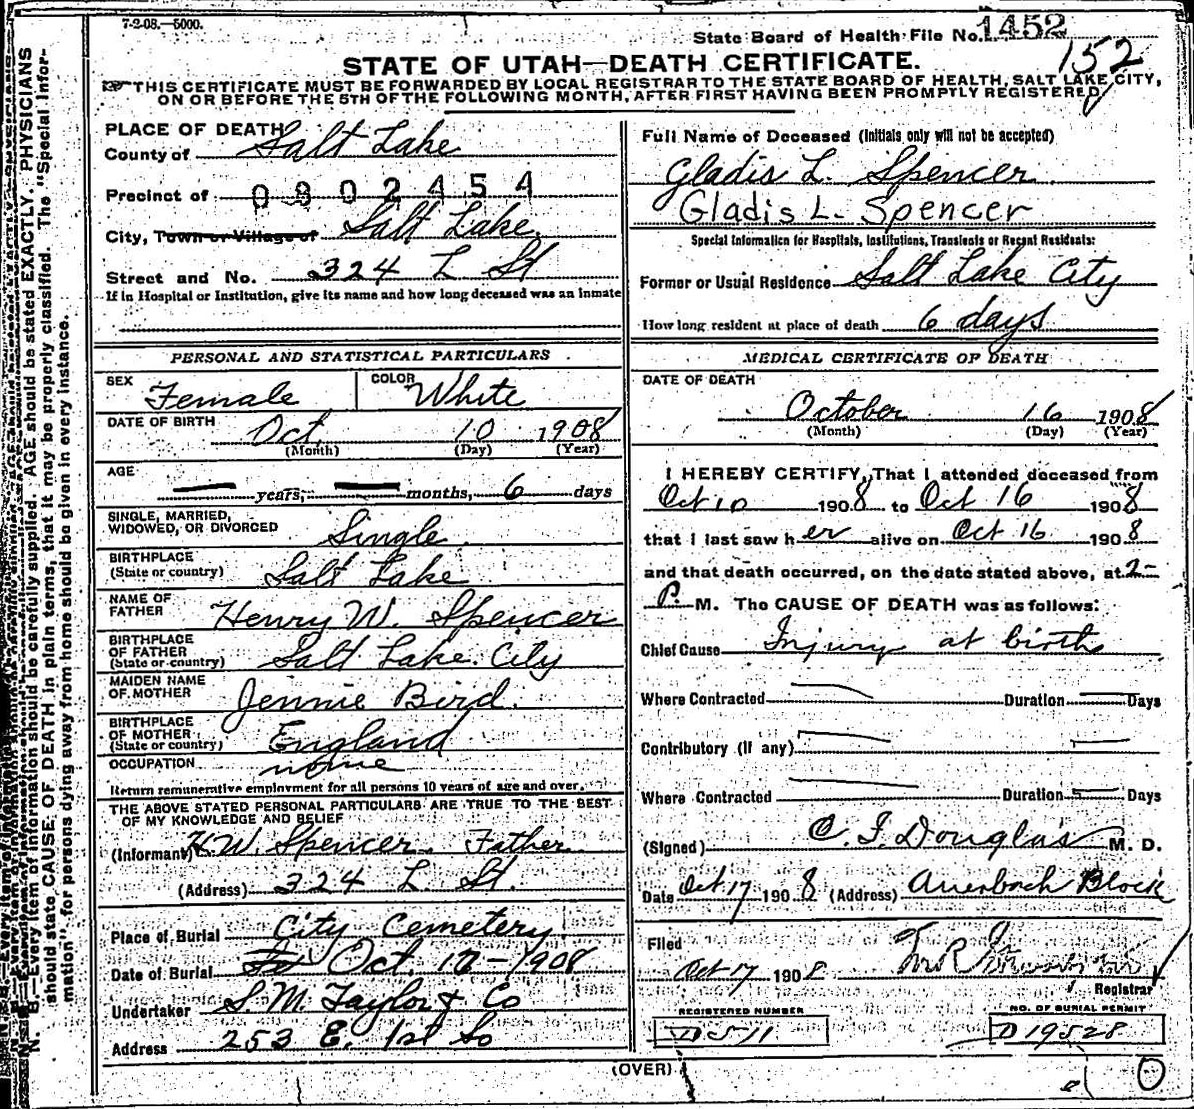 7-2-08.—5000.
State Board of Health File No. 1452
152
STATE OF UTAH—DEATH CERTIFICATE.
THIS CERTIFICATE MUST BE FORWARDED BY LOCAL REGISTRAR TO THE STATE BOARD OF HEALTH, SALT LAKE CITY,
ON OR BEFORE THE 5TH OF THE FOLLOWING MONTH, AFTER FIRST HAVING BEEN PROMPTLY REGISTERED
PLACE OF DEATH
County of Salt Lake
Precinct of 0802454
City, Town or Village of Salt Lake.
Street and No. 324 L St
If in Hospital or Institution, give its name and how long deceased was an inmate
PERSONAL AND STATISTICAL PARTICULARS.
SEX Female COLOR White
DATE OF BIRTH Oct. 10 1908
(Month) (Day) (Year)
AGE — years, — months, 6 days
SINGLE, MARRIED,
WIDOWED, OR DIVORCED Single.
BIRTHPLACE
(State or country) Salt Lake
NAME OF
FATHER Henry W. Spencer
BIRTHPLACE
OF FATHER
(State or country) Salt Lake City
MAIDEN NAME
OF MOTHER Jennie Bird.
BIRTHPLACE
OF MOTHER
(State or country) England
OCCUPATION none
Return remunerative employment for all persons 10 years of age and over.
THE ABOVE STATED PERSONAL PARTICULARS ARE TRUE TO THE BEST
OF MY KNOWLEDGE AND BELIEF
(Informant) H.W. Spencer Father
(Address) 324 L. St.
Place of Burial City Cemetery
Date of Burial Oct. 1908
Undertaker S. M. Taylor & Co
Address 253 E. 1st So
Full Name of Deceased (Initials only will not be accepted)
Gladis L. Spencer
Gladis L. Spencer
Special Information for Hospitals, Institutions, Transients or Recent Residents:
Former or Usual Residence Salt Lake City
How long resident at place of death 6 days
MEDICAL CERTIFICATE OF DEATH
DATE OF DEATH
October 16 1908
(Month) (Day) (Year)
I HEREBY CERTIFY, That I attended deceased from
Oct 10 1908 to Oct 16 1908
that I last saw her alive on Oct 16 1908
and that death occurred, on the date stated above, at 2-
P. M. The CAUSE OF DEATH was as follows:
Chief Cause Injury at birth
Where Contracted — Duration — Days
Contributory (if any) —
Where Contracted — Duration — Days
(Signed) C. F. Douglas M. D.
Date Oct 17 1908 (Address) Auerbach Block
Filed
Oct 17 1908
Registrar
REGISTERED NUMBER
D 571
NO. OF BURIAL PERMIT
D 19528
(OVER)
N. B.—Every item of information should be carefully supplied. AGE should be stated EXACTLY. PHYSICIANS
should state CAUSE OF DEATH in plain terms, that it may be properly classified. The "Special Infor-
mation" for persons dying away from home should be given in every instance.